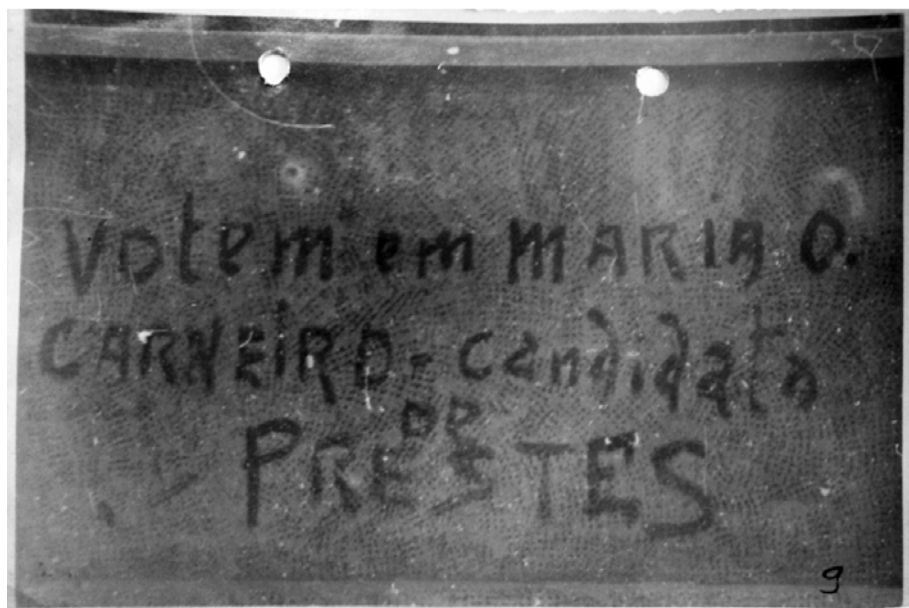 Votem em MARIA O.
CARNEIRO - Candidata
DE
PRESTES
9